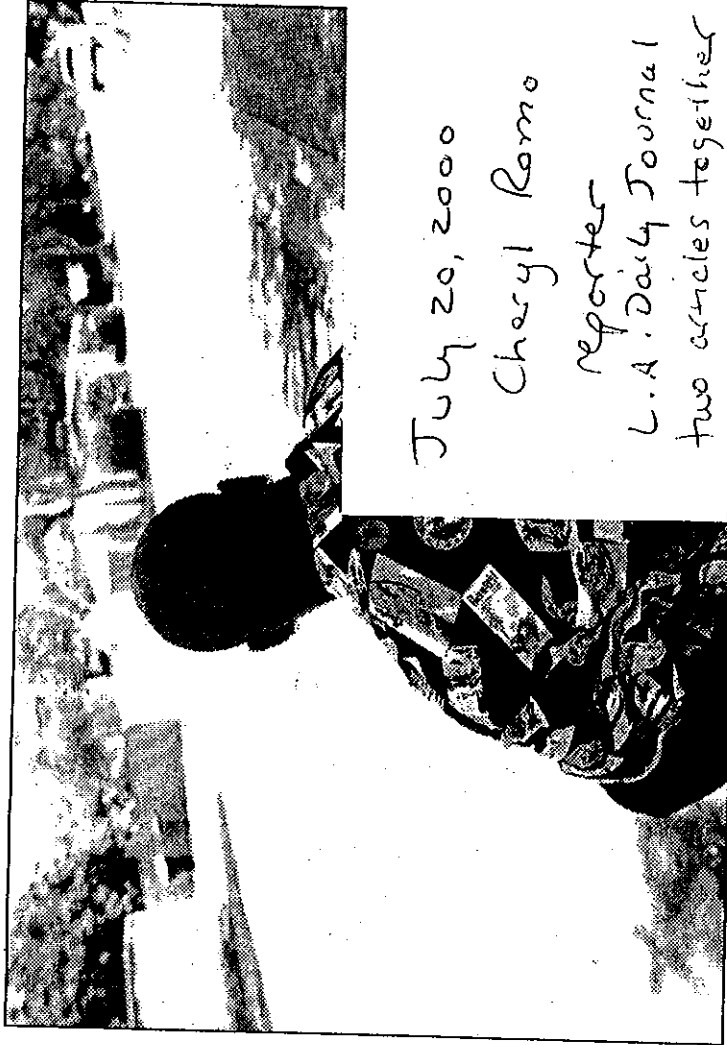 July 20, 2000
Cheryl Romo
reporter
L.A. Daily Journal
two articles together